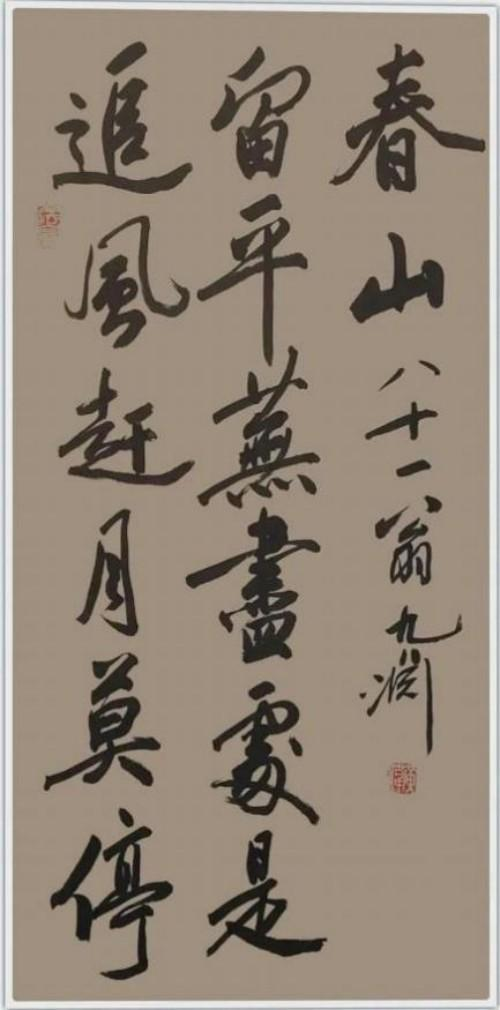 追風赶月莫停
留平蕪盡處是
春山 八十一翁九淵